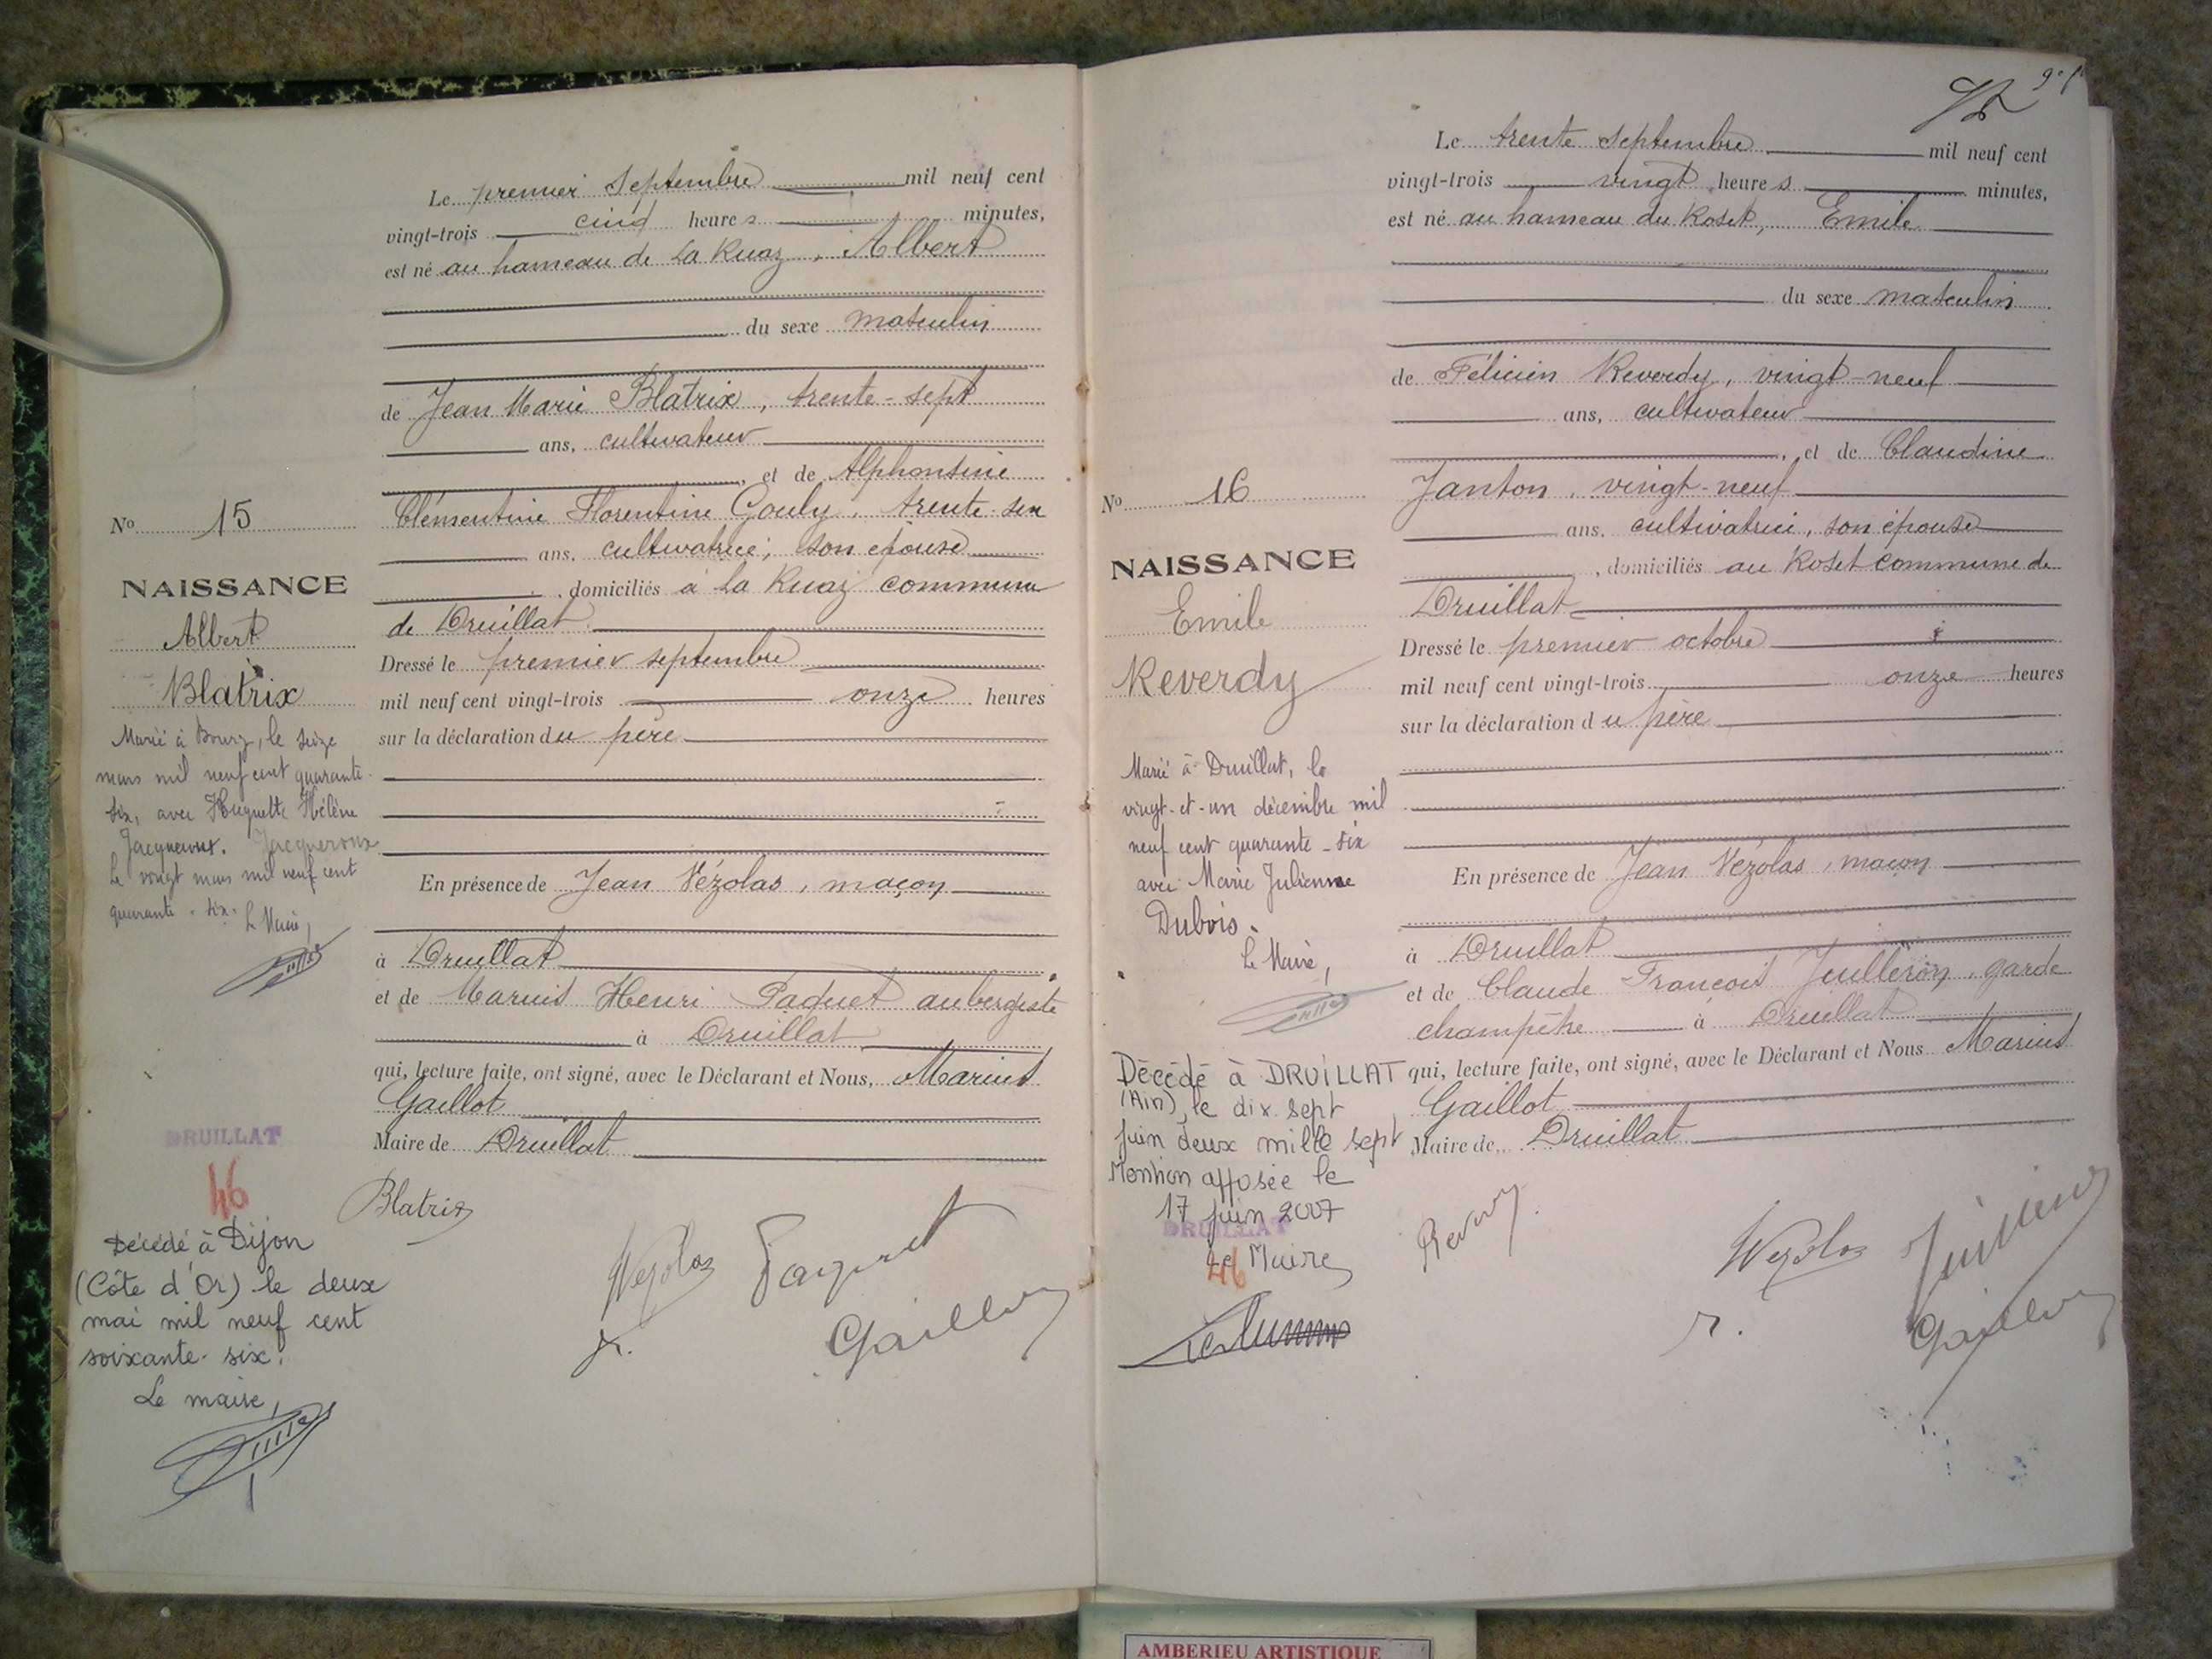 Le premier septembre mil neuf cent
vingt-trois cinq heures minutes,
est né au hameau de la Ruaz, Albert
du sexe masculin
de Jean Marie Blatrix, trente-sept
ans, cultivateur
, et de Alphonsine
Clémentine Florentine Gouly, trente-six
ans, cultivatrice, son épouse
, domiciliés à la Ruaz commune
de Druillat
Dressé le premier septembre
mil neuf cent vingt-trois onze heures
sur la déclaration du père
En présence de Jean Vézolas, maçon
à Druillat
et de Marius Henri Paquet aubergiste
à Druillat
qui, lecture faite, ont signé, avec le Déclarant et Nous, Marius
Gaillot
Maire de Druillat
Blatrix
Vezolas Paquet
Gaillot
No 15
NAISSANCE
Albert
Blatrix
Marié à Bourg, le seize
mars mil neuf cent quarante-
six, avec Huguette Hélène
Jacqueroux. Jacqueroux
Le vingt mars mil neuf cent
quarante-six. Le Maire,
DRUILLAT
46
Décédé à Dijon
(Côte d'Or) le deux
mai mil neuf cent
soixante-six.
Le maire,
Le trente septembre mil neuf cent
vingt-trois vingt heures minutes,
est né au hameau du Roset, Emile
du sexe masculin
de Félicien Reverdy, vingt-neuf
ans, cultivateur
, et de Claudine
Janton, vingt-neuf
ans, cultivatrice, son épouse
, domiciliés au Roset commune de
Druillat
Dressé le premier octobre
mil neuf cent vingt-trois onze heures
sur la déclaration du père
En présence de Jean Vézolas, maçon
à Druillat
et de Claude François Juilleron, garde
champêtre à Druillat
qui, lecture faite, ont signé, avec le Déclarant et Nous Marius
Gaillot
Maire de Druillat
Reverdy
Vezolas Juilleron
Gaillot
No 16
NAISSANCE
Emile
Reverdy
Marié à Druillat, le
vingt-et-un décembre mil
neuf cent quarante-six
avec Marie Julienne
Dubois.
Le Maire,
Décédé à DRUILLAT
(Ain), le dix sept
juin deux mille sept
Mention apposée le
17 juin 2007
DRUILLAT
46
Le Maire
AMBERIEU ARTISTIQUE